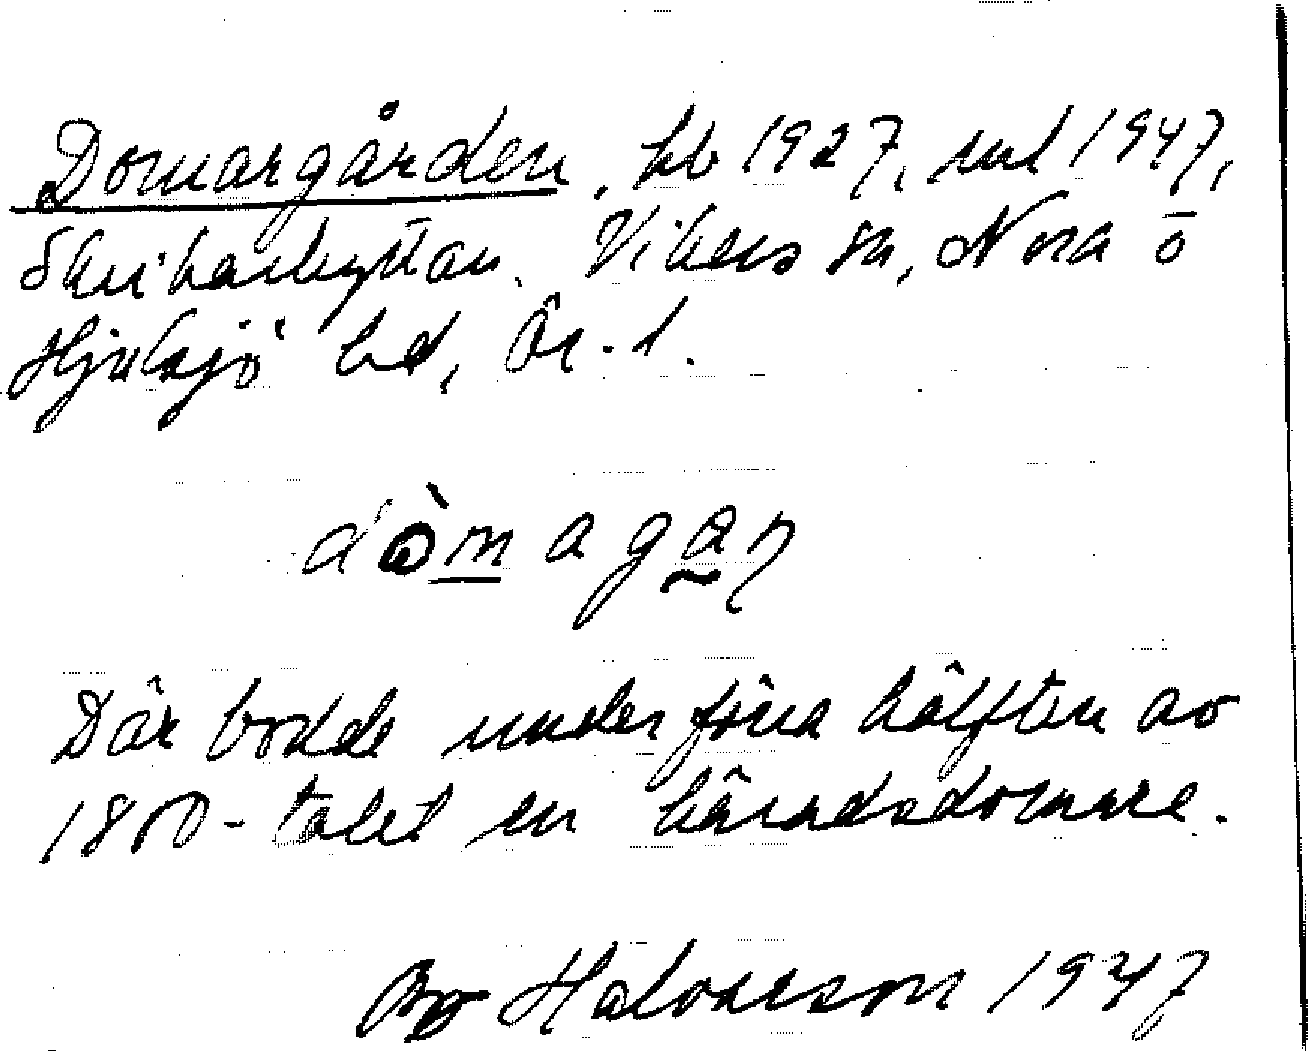 Domargården, hb 1927, uul 1947,
Skrikarhyttan. Vikers sn, Nora o
Hjulsjö bd, Ör. l.
dòmagaṇ
Där bodde under förra hälften av
1800-talet en häradsdomare.
Bo Halvarson 1947